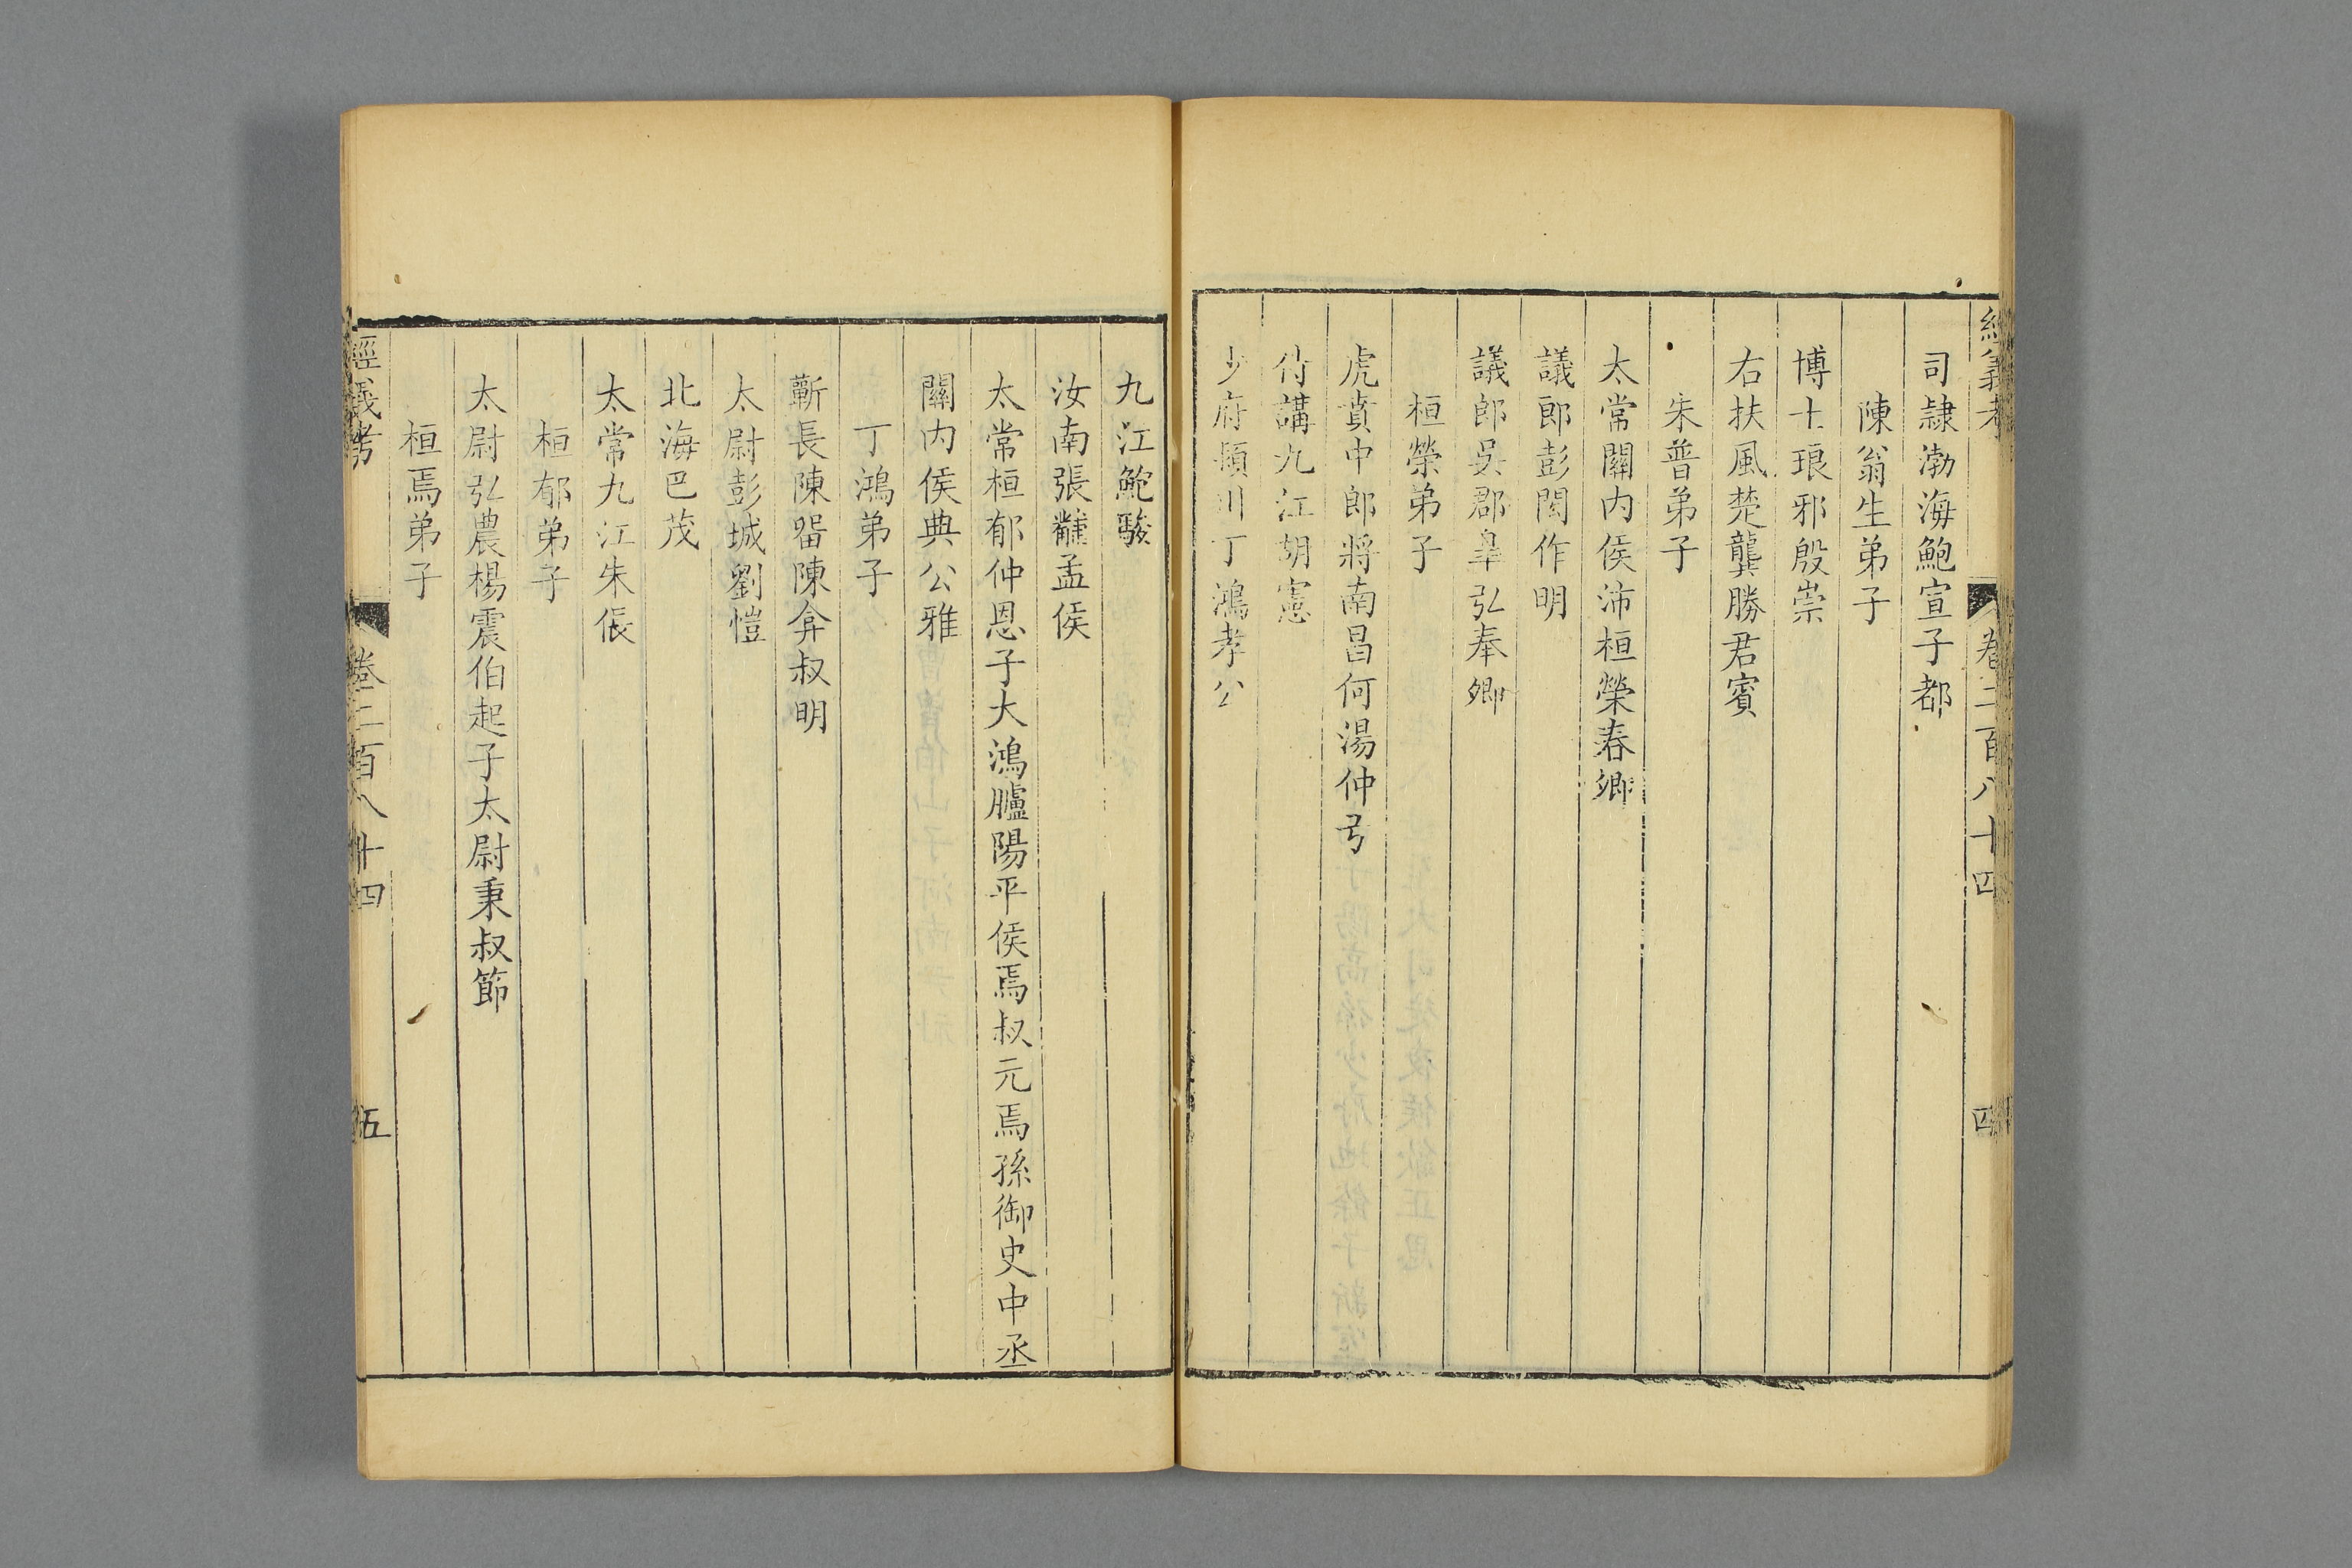 經義考 卷二百八十四 四
司隷渤海鮑宣子都
陳翁生弟子
博士琅邪殷崇
右扶風楚龔勝君賓
朱普弟子
太常關内侯沛桓榮春卿
議郎彭閎作明
議郎吳郡臯弘奉卿
桓榮弟子
虎賁中郎將南昌何湯仲弓
侍講九江胡憲
少府潁川丁鴻孝公
九江鮑駿
汝南張酺孟侯
太常桓郁仲恩子大鴻臚陽平侯焉叔元焉孫御史中丞
關内侯典公雅
丁鴻弟子
蘄長陳畱陳弇叔明
太尉彭城劉愷
北海巴茂
太常九江朱倀
桓郁弟子
太尉弘農楊震伯起子太尉秉叔節
桓焉弟子
經義考 卷二百八十四 五